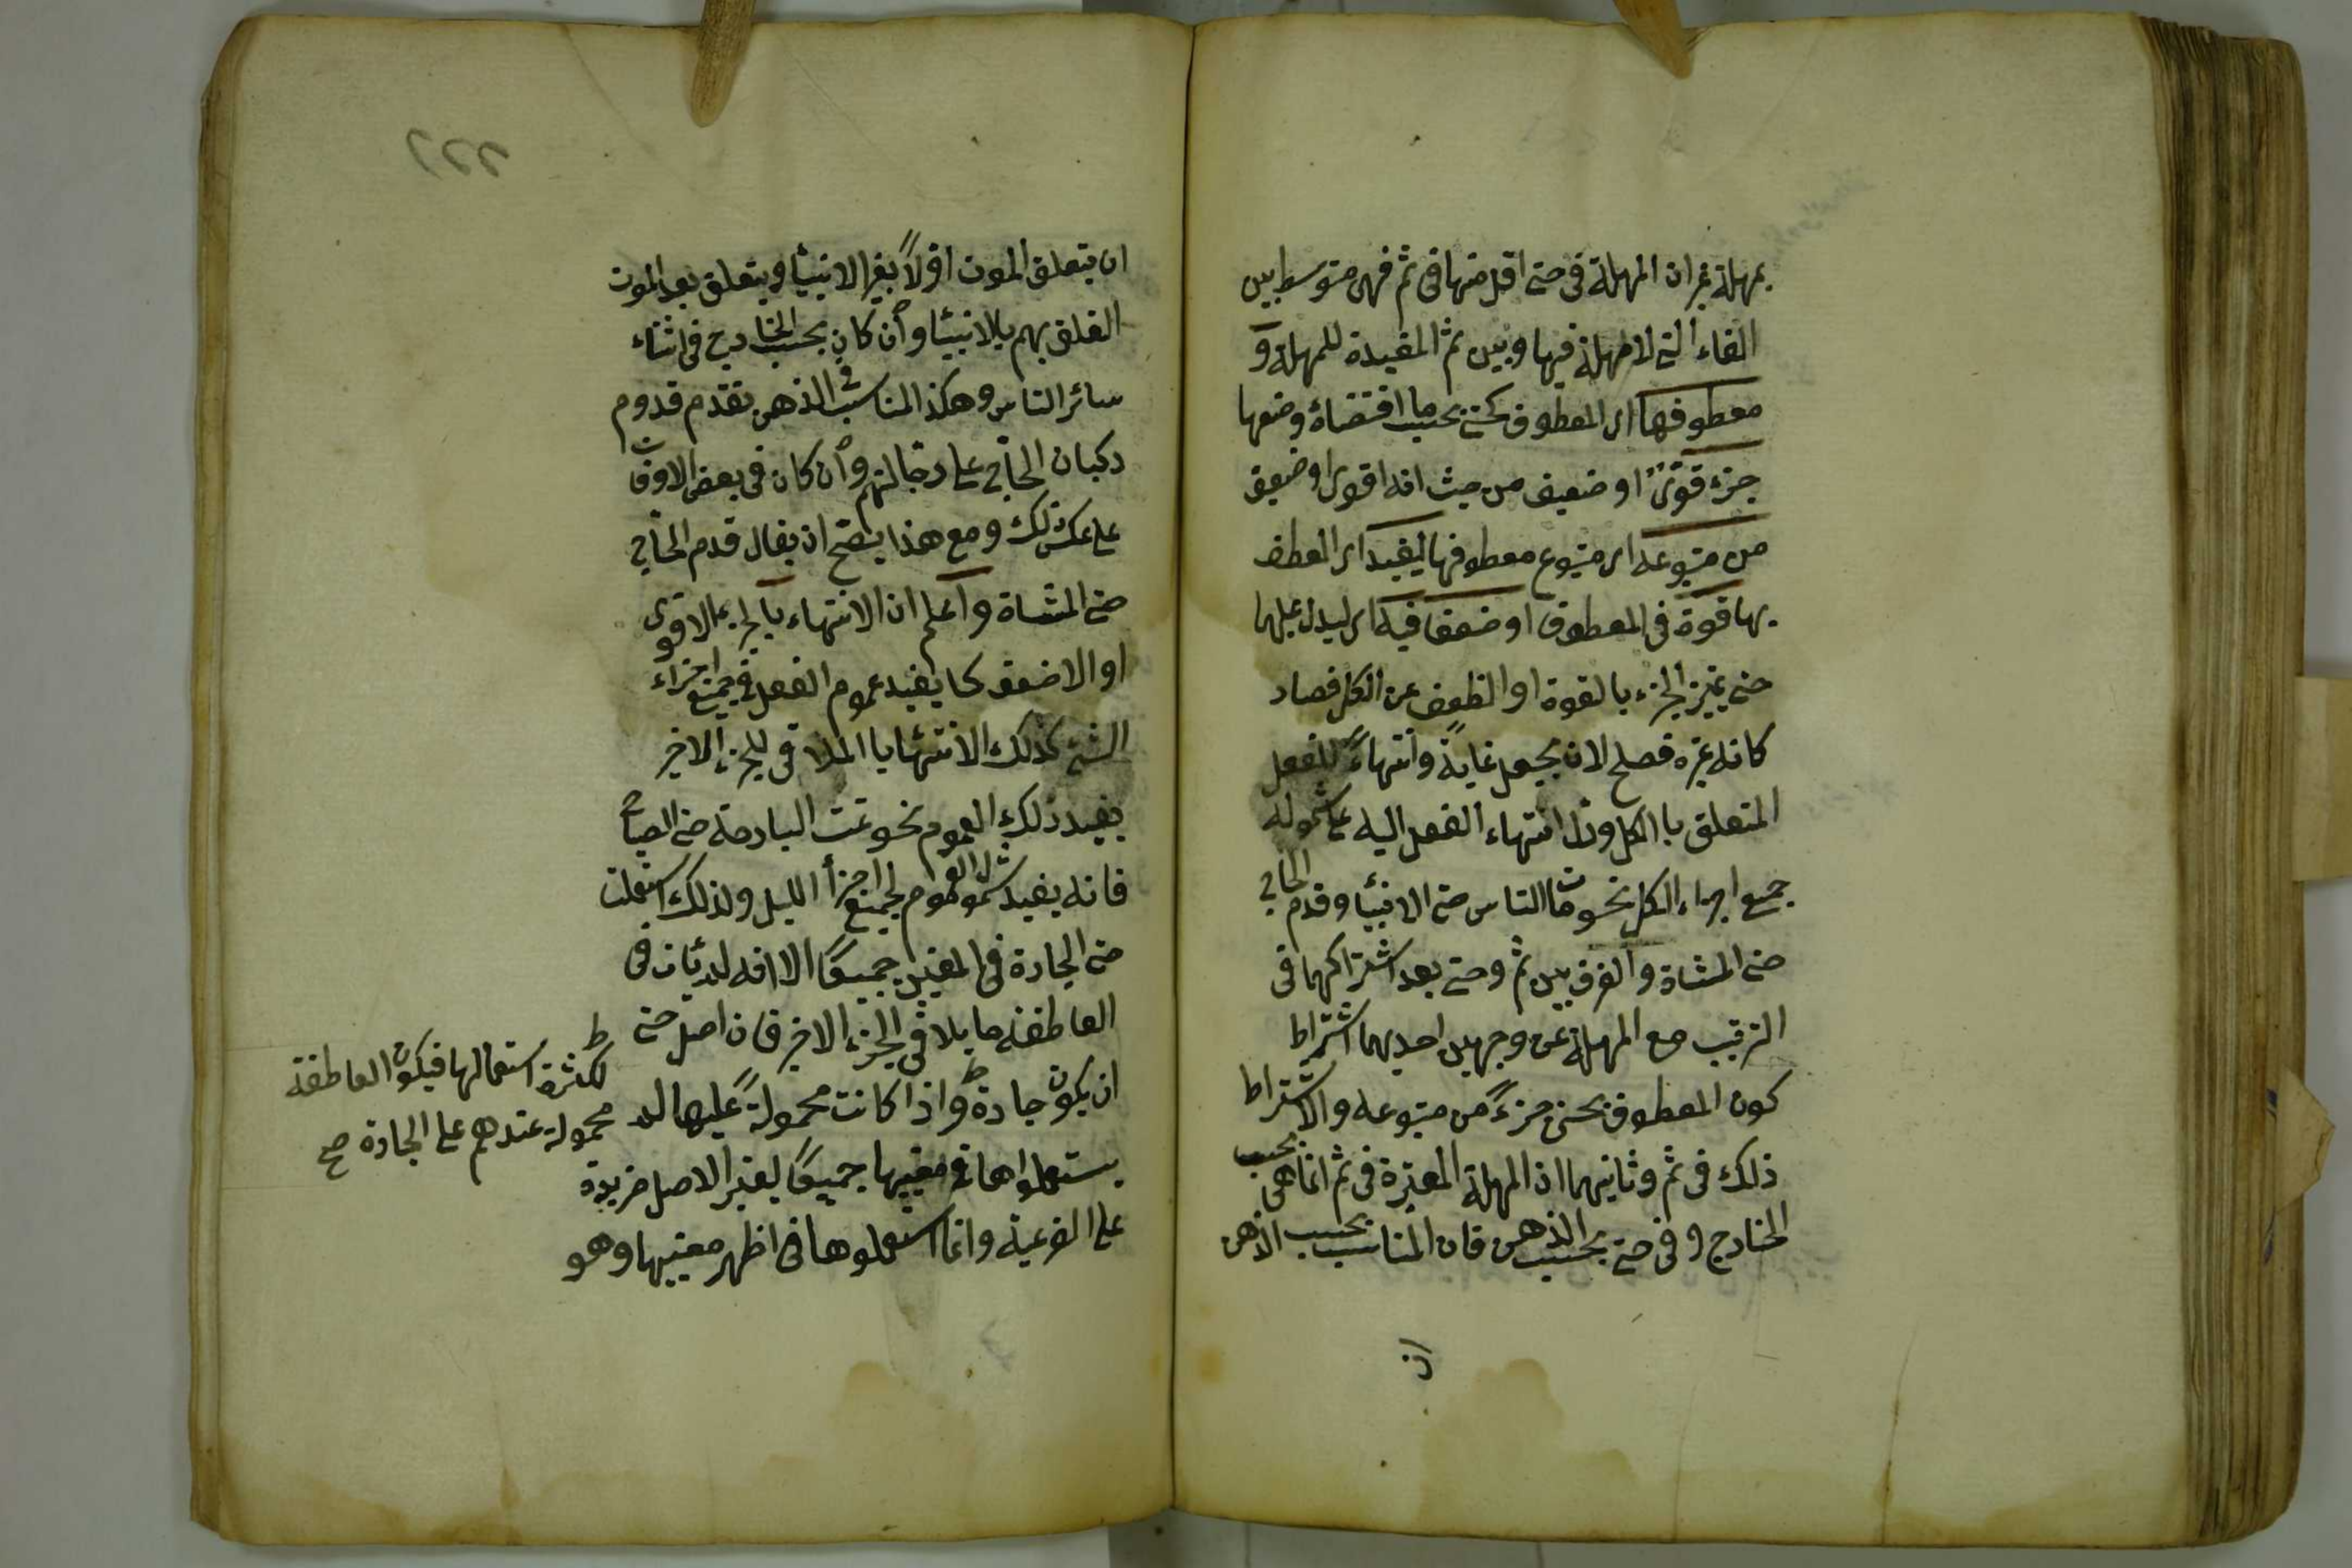 بمهلة غير ان المهلة فى حتى اقل منها فى ثم فهى متوسط بين
الفاء التى لا مهلة فيها وبين ثم المفيدة للمهلة و
معطوفها اى المعطوف بحتى بحسب ما اقتضاه وضعها
جزء قوىّ او ضعيف من حيث انه اقوى او ضعيف
من متبوعه اى متبوع معطوفها ليفيد اى العطف
بها قوة فى المعطوف او ضعفا فيه اى ليدل عليهما
حتى يتميز الجزء بالقوة او الظعف عن الكل فصار
كانه غيره فصلح لان يجعل غاية وانتهاءً للفعل
المتعلق با الكل ودل انتهاء الفعل اليه على شموله
جميع اجزاء الكل نحو مات الناس حتى الانبيا وقدم الحاج
حتى المشاة والفرق بين ثم وحتى بعد اشتراكهما فى
الترتيب مع المهلة عن وجهين احديهما اشتراط
كون المعطوف بحتى جزءً من متبوعه والاشتراط
ذلك فى ثم وثانيهما ان المهلة المعتبرة فى ثم انما هى بحسب
الخارج وفى حتى بحسب الذهن فان المناسب بحسب الذهن
ان
ان يتعلق الموت اوّلاً بغير الانبيا ويتعلق بعد الموت
العلق بهم بالانبيا وان كان بحسب الخارج فى اثناء
سائر الناس وهكذا المناسب فى الذهن تقدم قدوم
ركبان الحاج على رجالتهم وان كان فى بعض الاوقات
على عكس ذلك ومع هذا يصح ان يقال قدم الحاج
حتى المشاة واعلم ان الانتهاء بالجزء الاقوى
او الاضعف كما يفيد عموم الفعل فى جميع اجزاء
الشئ كذلك الانتهايا الملاقى للجزء الاخير
يفيد ذلك العموم نحو نمت البارحة حتى الصباح
فانه يفيد شمول النوم لجميع اجزأ الليل ولذلك استعملت
حتى الجارة فى المعنيين جميعًا الا انه لم يأت فى
العاطفة ما يلاقى الجزء الاخير فان اصل حتى
ان يكون جارة ط واذا كانت محمولةً عليها لم
يستعملواها فى معنييها جميعًا ليعتبر الاصل مزيدة
على الفرعية وانما استعملوها فى اظهر معنييها وهو
ط لكثرة استعمالها فيكون العاطفة
محمولة عندهم على الجارة صح